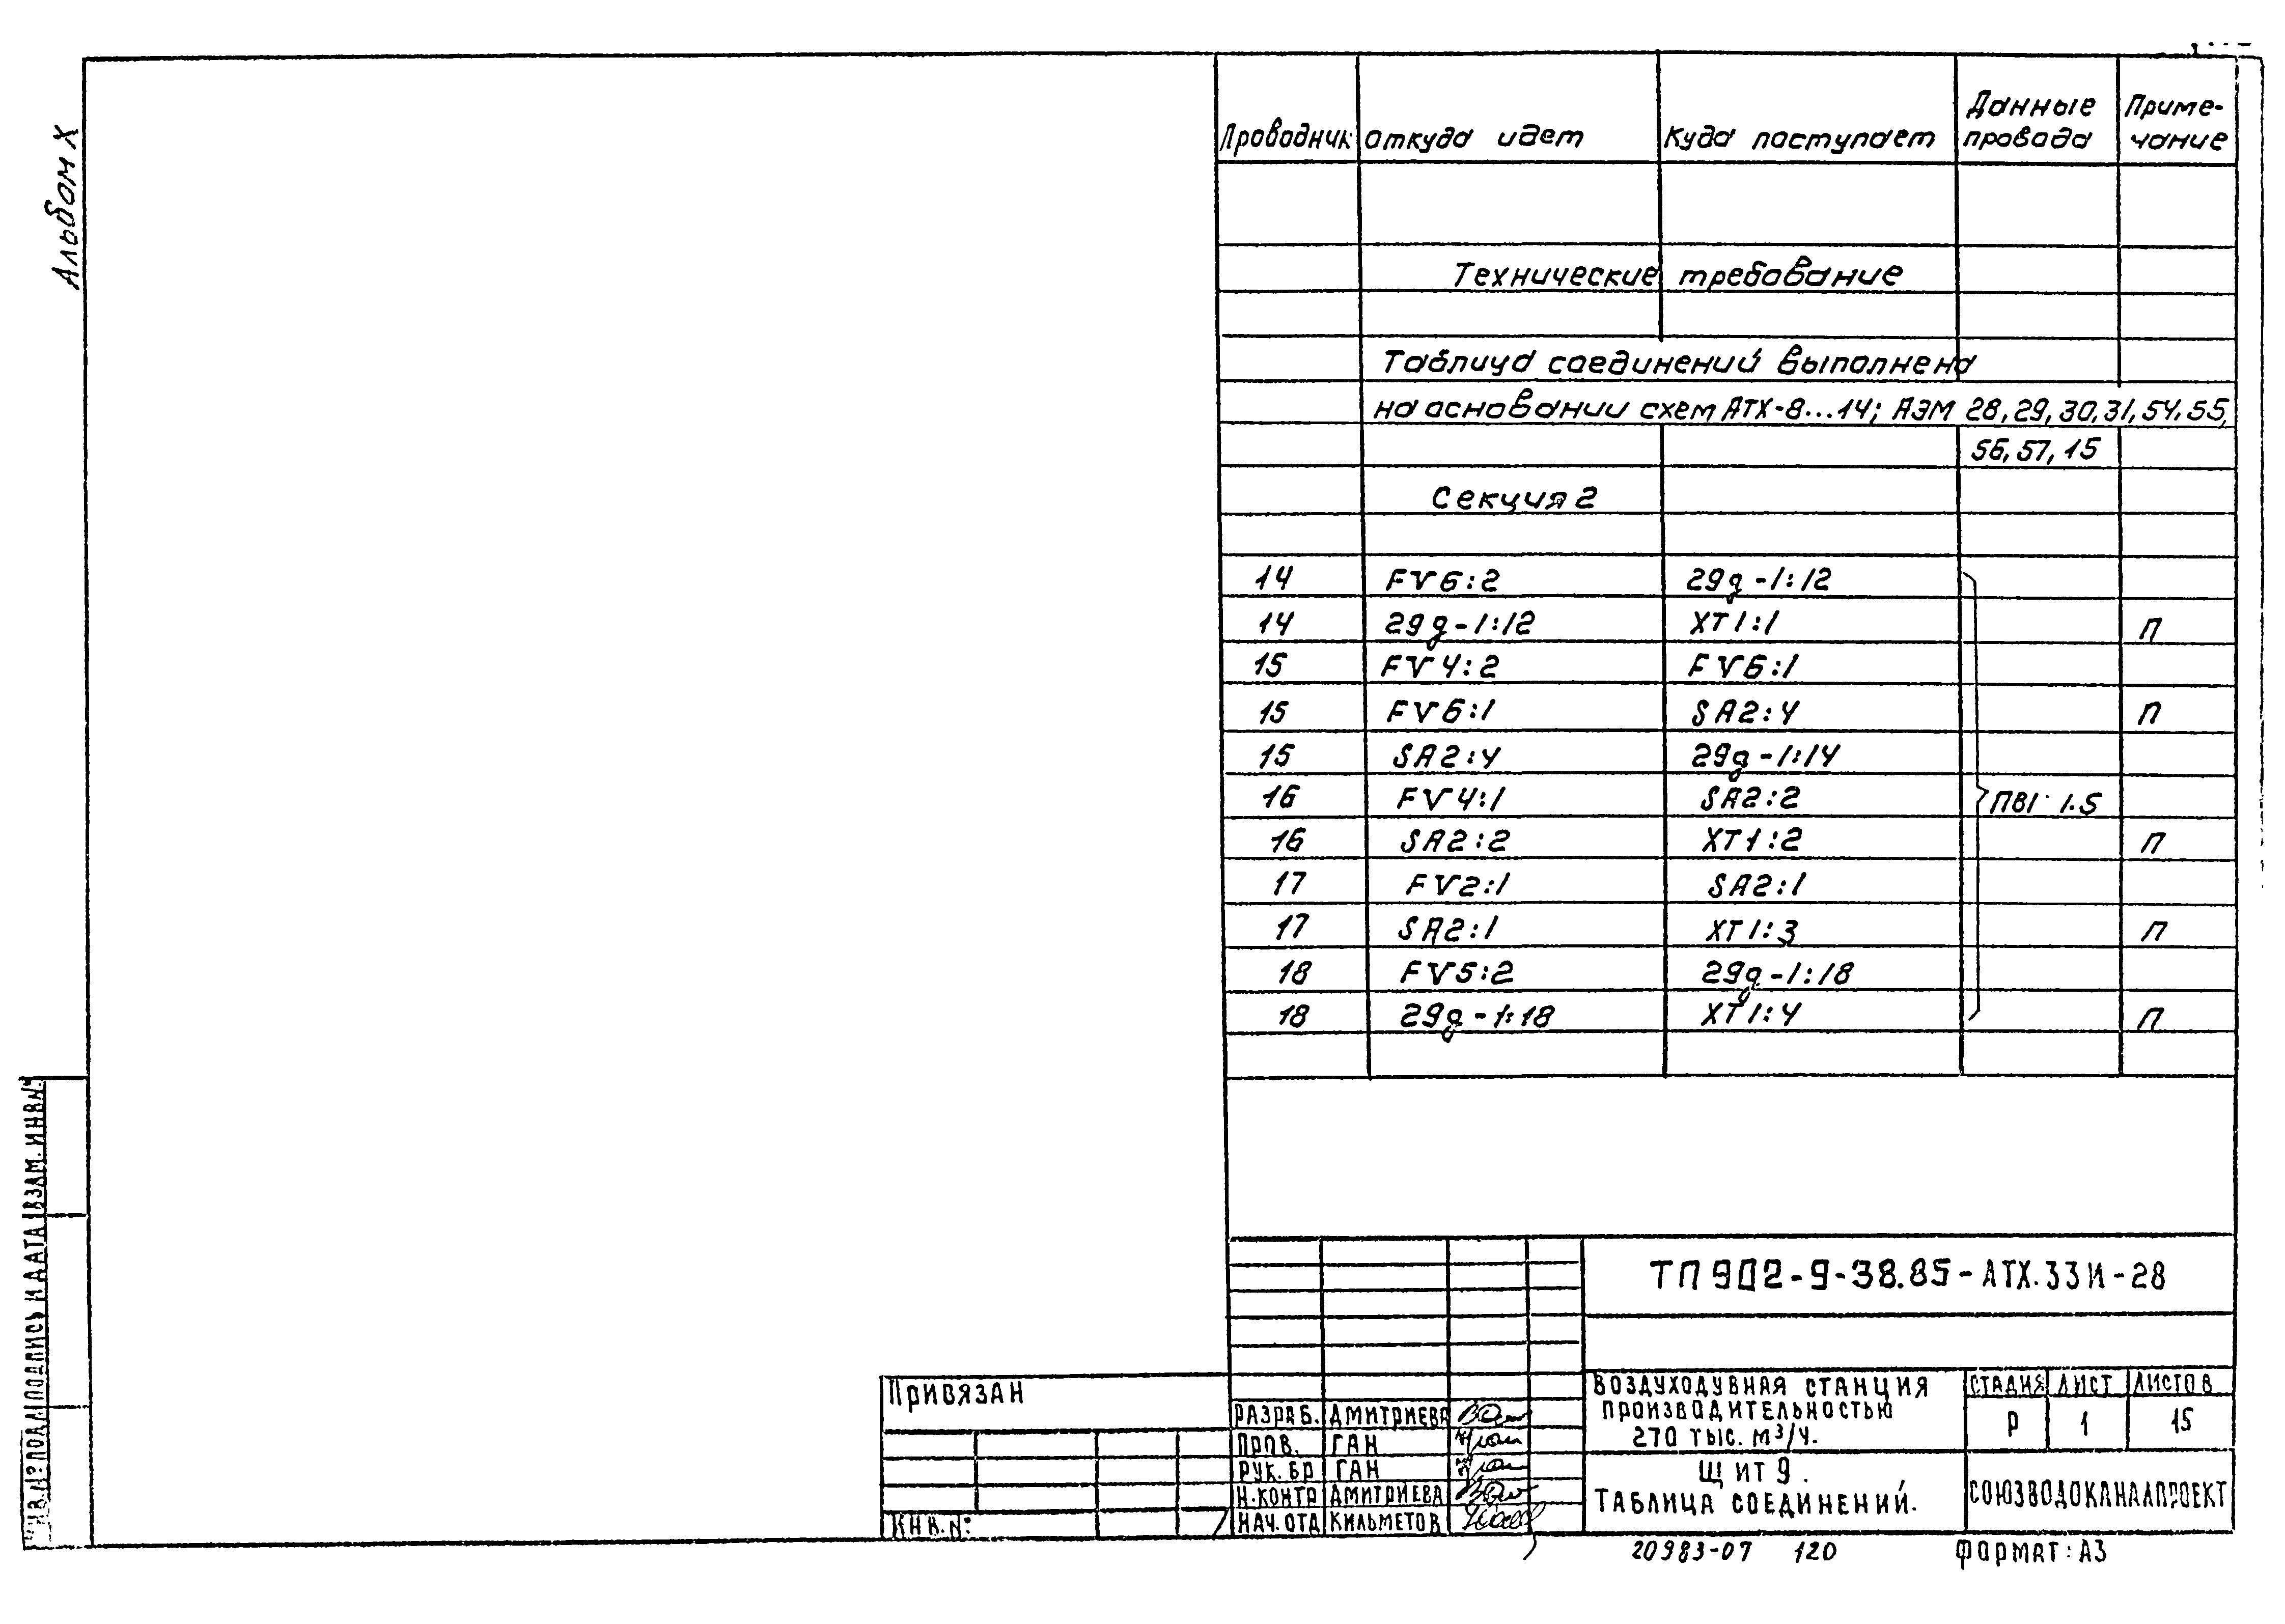 Альбом X
Проводник откуда идет Куда поступает Данные провода Приме-чание
Технические требование
Таблица соединений выполнена
на основании схем АТХ-8...14; АЭМ 28, 29, 30, 31, 54, 55,
56, 57, 15
Секция 2
14 FV6:2 29g-1:12
14 29g-1:12 XT1:1 П
15 FV4:2 FV6:1
15 FV6:1 SA2:4 П
15 SA2:4 29g-1:14
16 FV4:1 SA2:2 ПВ1 1.5
16 SA2:2 XT1:2 П
17 FV2:1 SA2:1
17 SA2:1 XT1:3 П
18 FV5:2 29g-1:18
18 29g-1:18 XT1:4 П
ТП 902-9-38.85-АТХ.33И-28
Привязан
ИНВ.№
РАЗРАБ. ДМИТРИЕВА
ПРОВ. ГАН
РУК.БР ГАН
Н.КОНТР ДМИТРИЕВА
НАЧ.ОТД КИЛЬМЕТОВ
ВОЗДУХОДУВНАЯ СТАНЦИЯ
ПРОИЗВОДИТЕЛЬНОСТЬЮ
270 ТЫС. М³/Ч.
СТАДИЯ ЛИСТ ЛИСТОВ
Р 1 15
ЩИТ 9.
ТАБЛИЦА СОЕДИНЕНИЙ.
СОЮЗВОДОКАНАЛПРОЕКТ
20983-07 120 ФОРМАТ: А3
ИНВ.№ ПОДЛ ПОДПИСЬ И ДАТА ВЗАМ.ИНВ.№